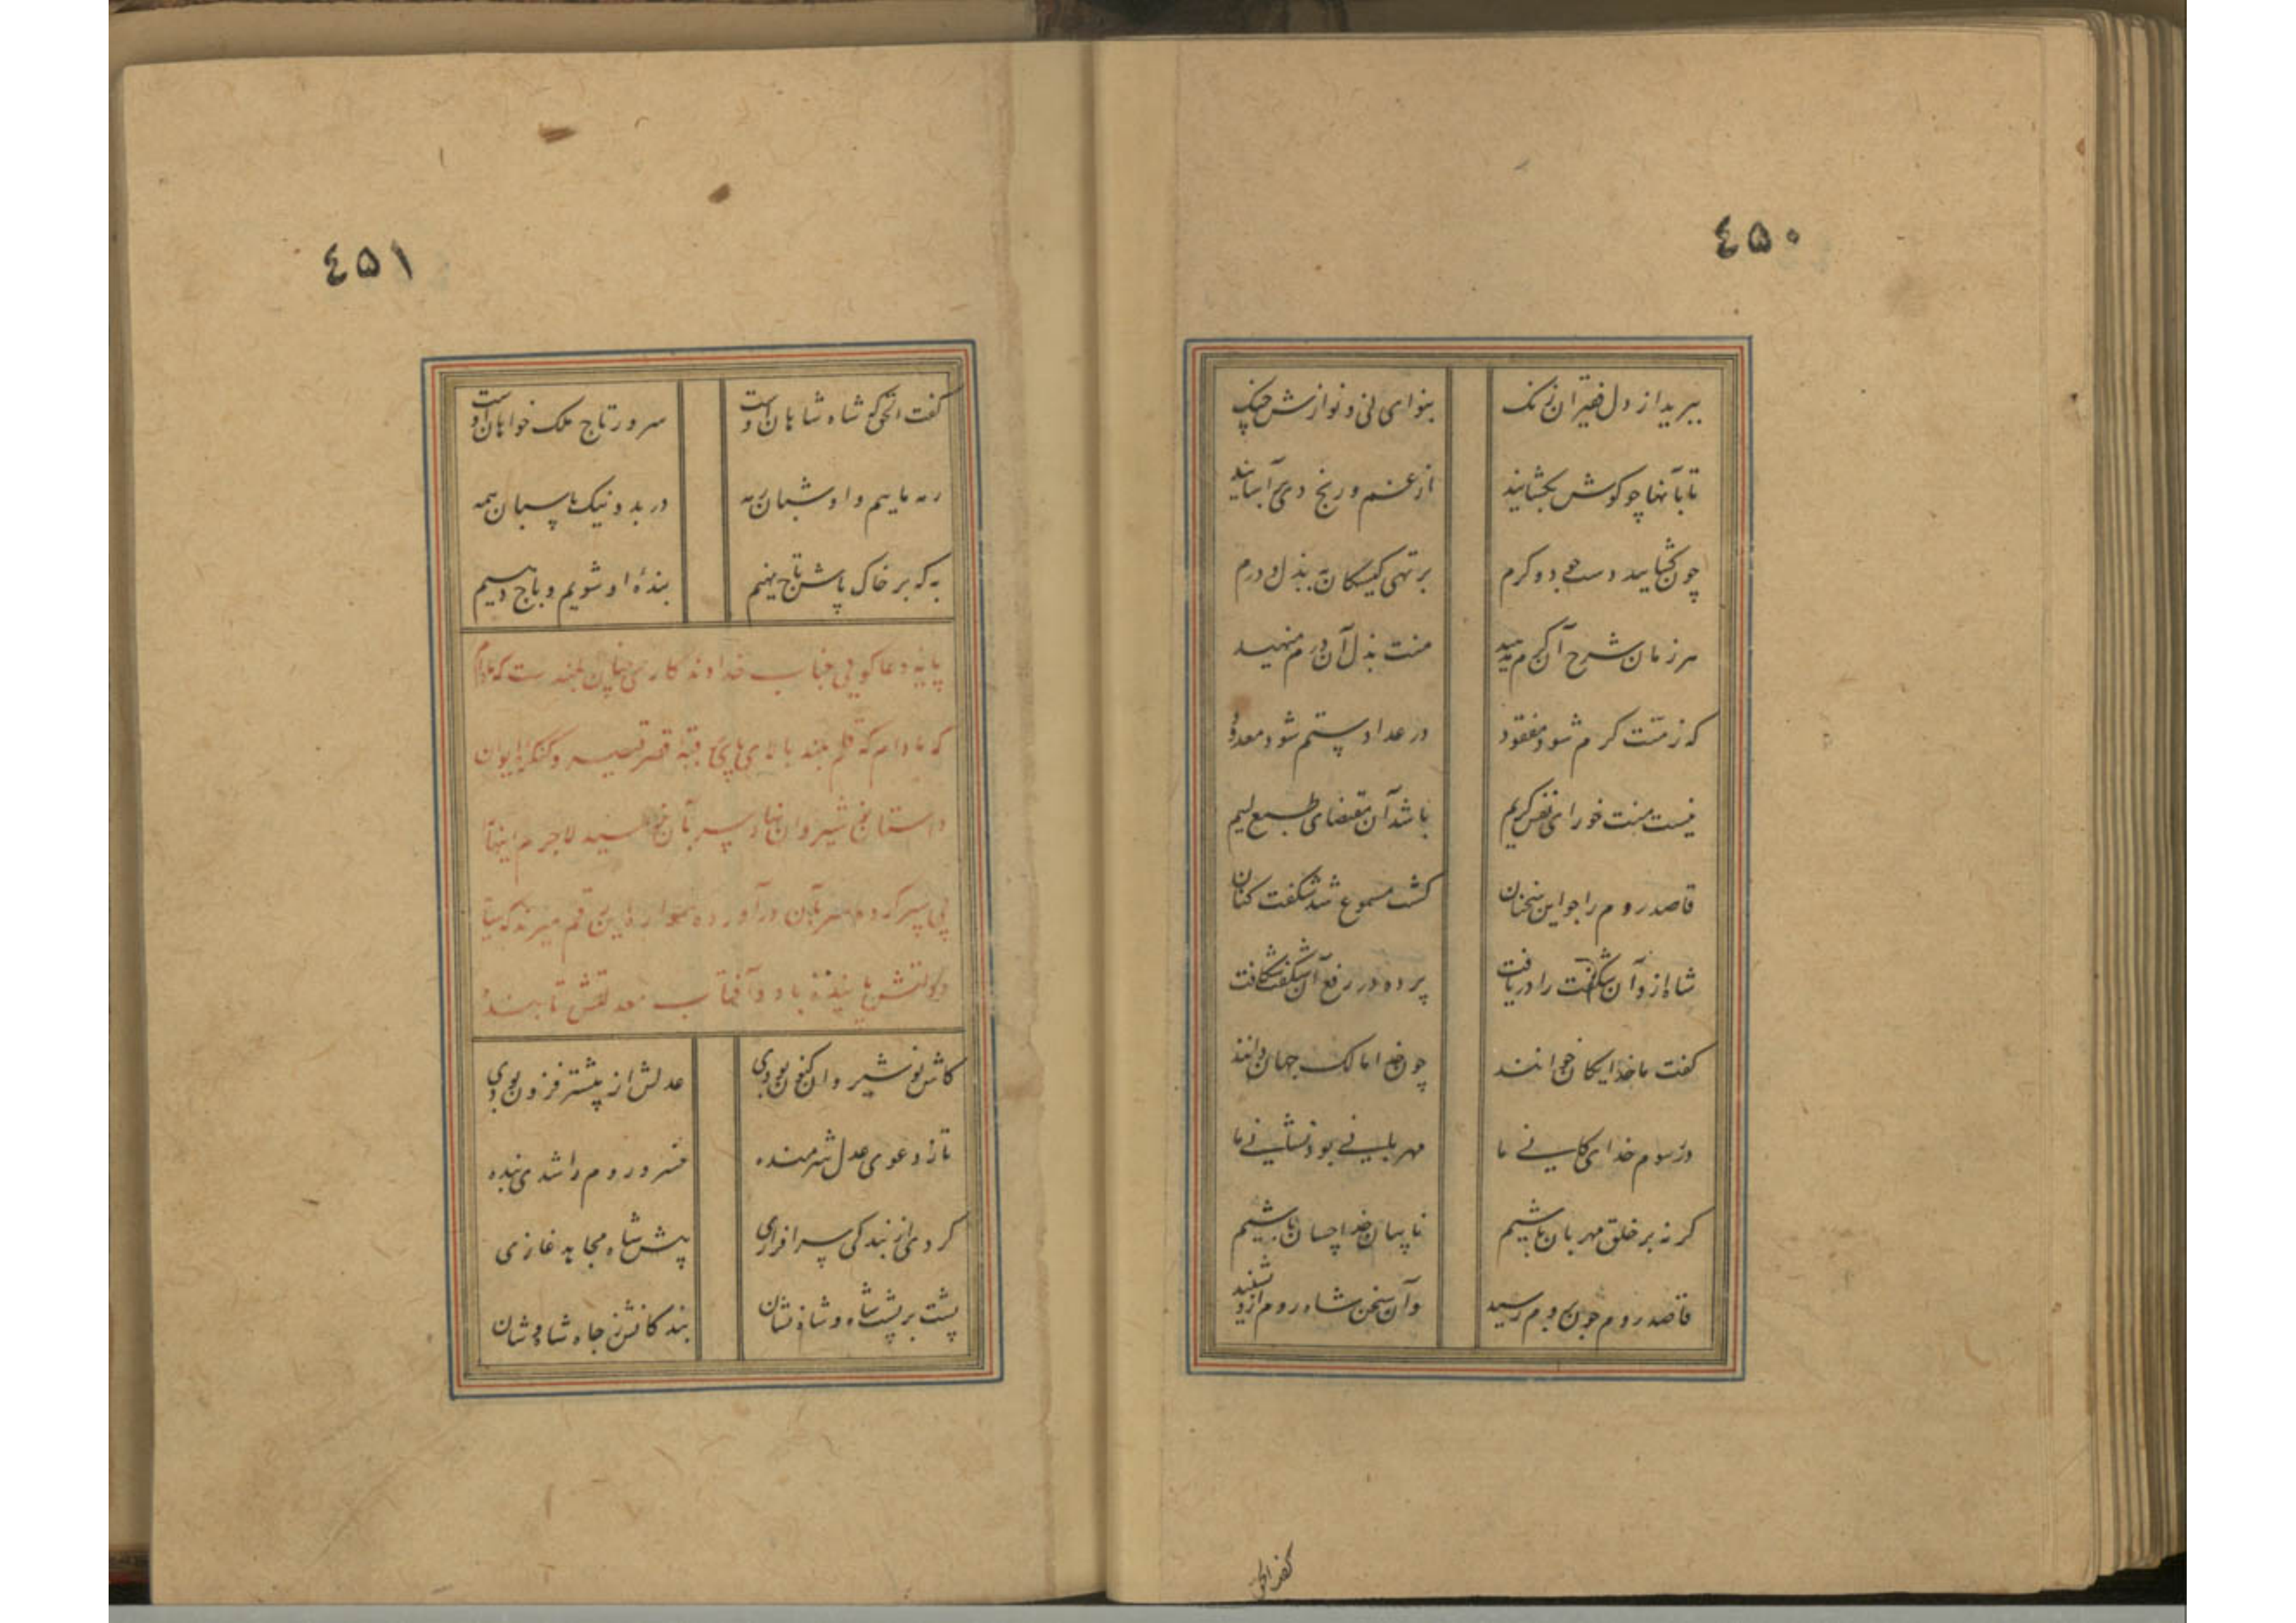 ٤٥٠
ببرید از دل فقیران زنک بنوای نی و نوازش چنک
تا بآنها چو کوش بکشایند از غم و رنج دمی آسایند
چون کشایید دست جود و کرم بر تهی کیسکان به بذل درم
هر زمان شرح آن کرم مدهید منت بذل آن درم منهید
که ز منت کرم شود مفقود در عداد ستم شود معدود
نیست منت خورای نفس کریم باشد آن مقتضای طبع لیم
قاصد روم را چو این سخنان کشت مسموع شد شکفت کنان
شاه ازو آن شکفت را دریافت پرده در رفع آن شکفت شکافت
کفت ما خدایکان خوانند چون خدا مالک جهان دانند
در رسوم خدایکانی ما مهربانی بود نشانی ما
کر نه بر خلق مهربان باشیم ناسپاس خدا چسان باشیم
قاصد روم چون بروم رسید وآن سخن شاه روم ازو بشنید
کفت الحق
٤٥١
کفت الحق که شاه شاهان اوست سرور تاج ملک خواهان اوست
رمه ماییم و او شبان رمه در بد و نیک پاسبان همه
به که بر خاک پاش تاج نهیم بندهٔ او شویم و باج دهیم
پایهٔ دعا کویی جناب خداوندکاری چنان بلند ست که مادام
که مادام که قلم بلند بالا پای بر قبهٔ قصر قیصر و کنکرهٔ ایوان
داستان نوشیروان نهاد سر بآن نرسید لاجرم اینها
پی سپر کرده سر بآن درآورده رقم میزند که سایهٔ
دولتش پاینده باد و آفتاب معدلتش تابنده
کاش نوشیروان کنون بودی عدلش از پیشتر فزون بودی
تا ز دعوی عدل شرمنده خسرو روم را شدی بنده
کردی از بندکی سرافرازی پیش شاه مجاهد غازی
پشت بر پشت شاه و شاه نشان بندکانش ز جاه شاه وشان